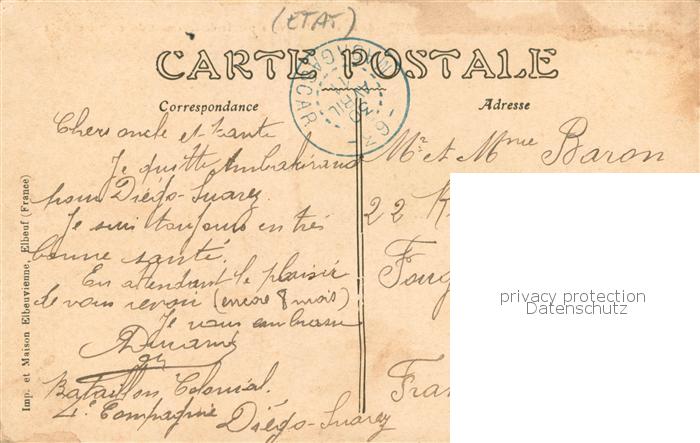 (ETAT)
CARTE POSTALE
Correspondance
Adresse
MADAGASCAR
30 AVRIL
Chers oncle et tante
Je quitte
pour Diégo-Suarez.
Je suis toujours en très
bonne santé.
En attendant le plaisir
de vous revoir (encore 8 mois)
Je vous embrasse
Bataillon Colonial.
4e Compagnie
Diégo-Suarez
Mr et Mme Baron
22 R
Foug
Fran
privacy protection
Datenschutz
Imp. et Maison Elbeuvienne, Elbeuf (France)